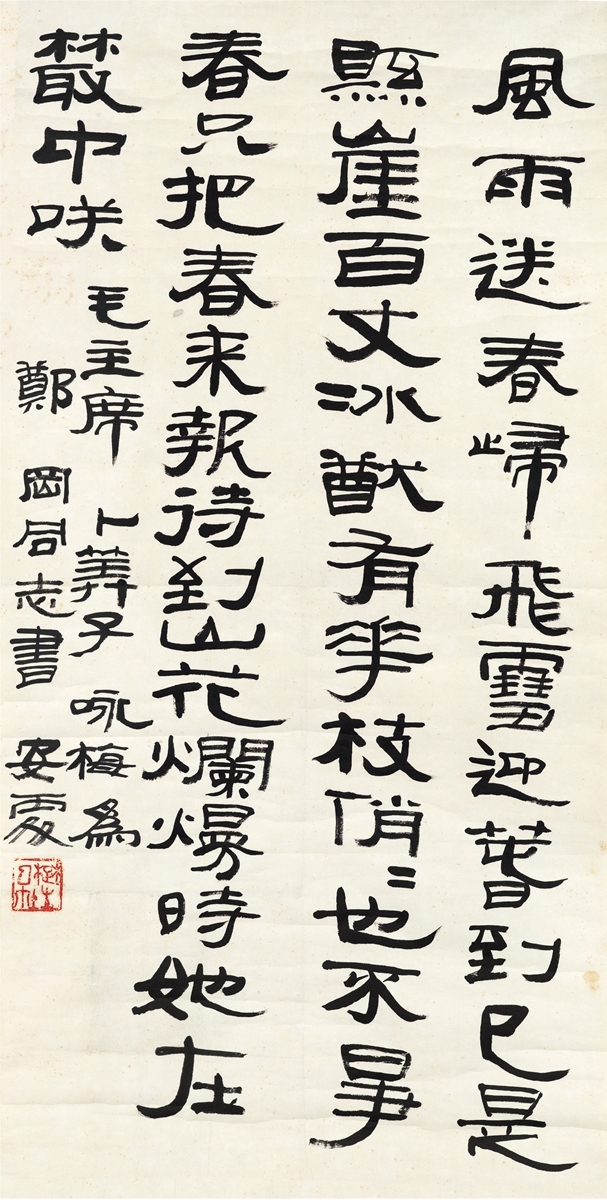 風雨送春歸飛雪迎萅到已是
縣崖百丈冰猷有華枝俏〻也不爭
春只把春来報待到山花爛熳時她在
叢中咲 毛主席 卜算子 咏梅 為
鄭岡同志書 安處